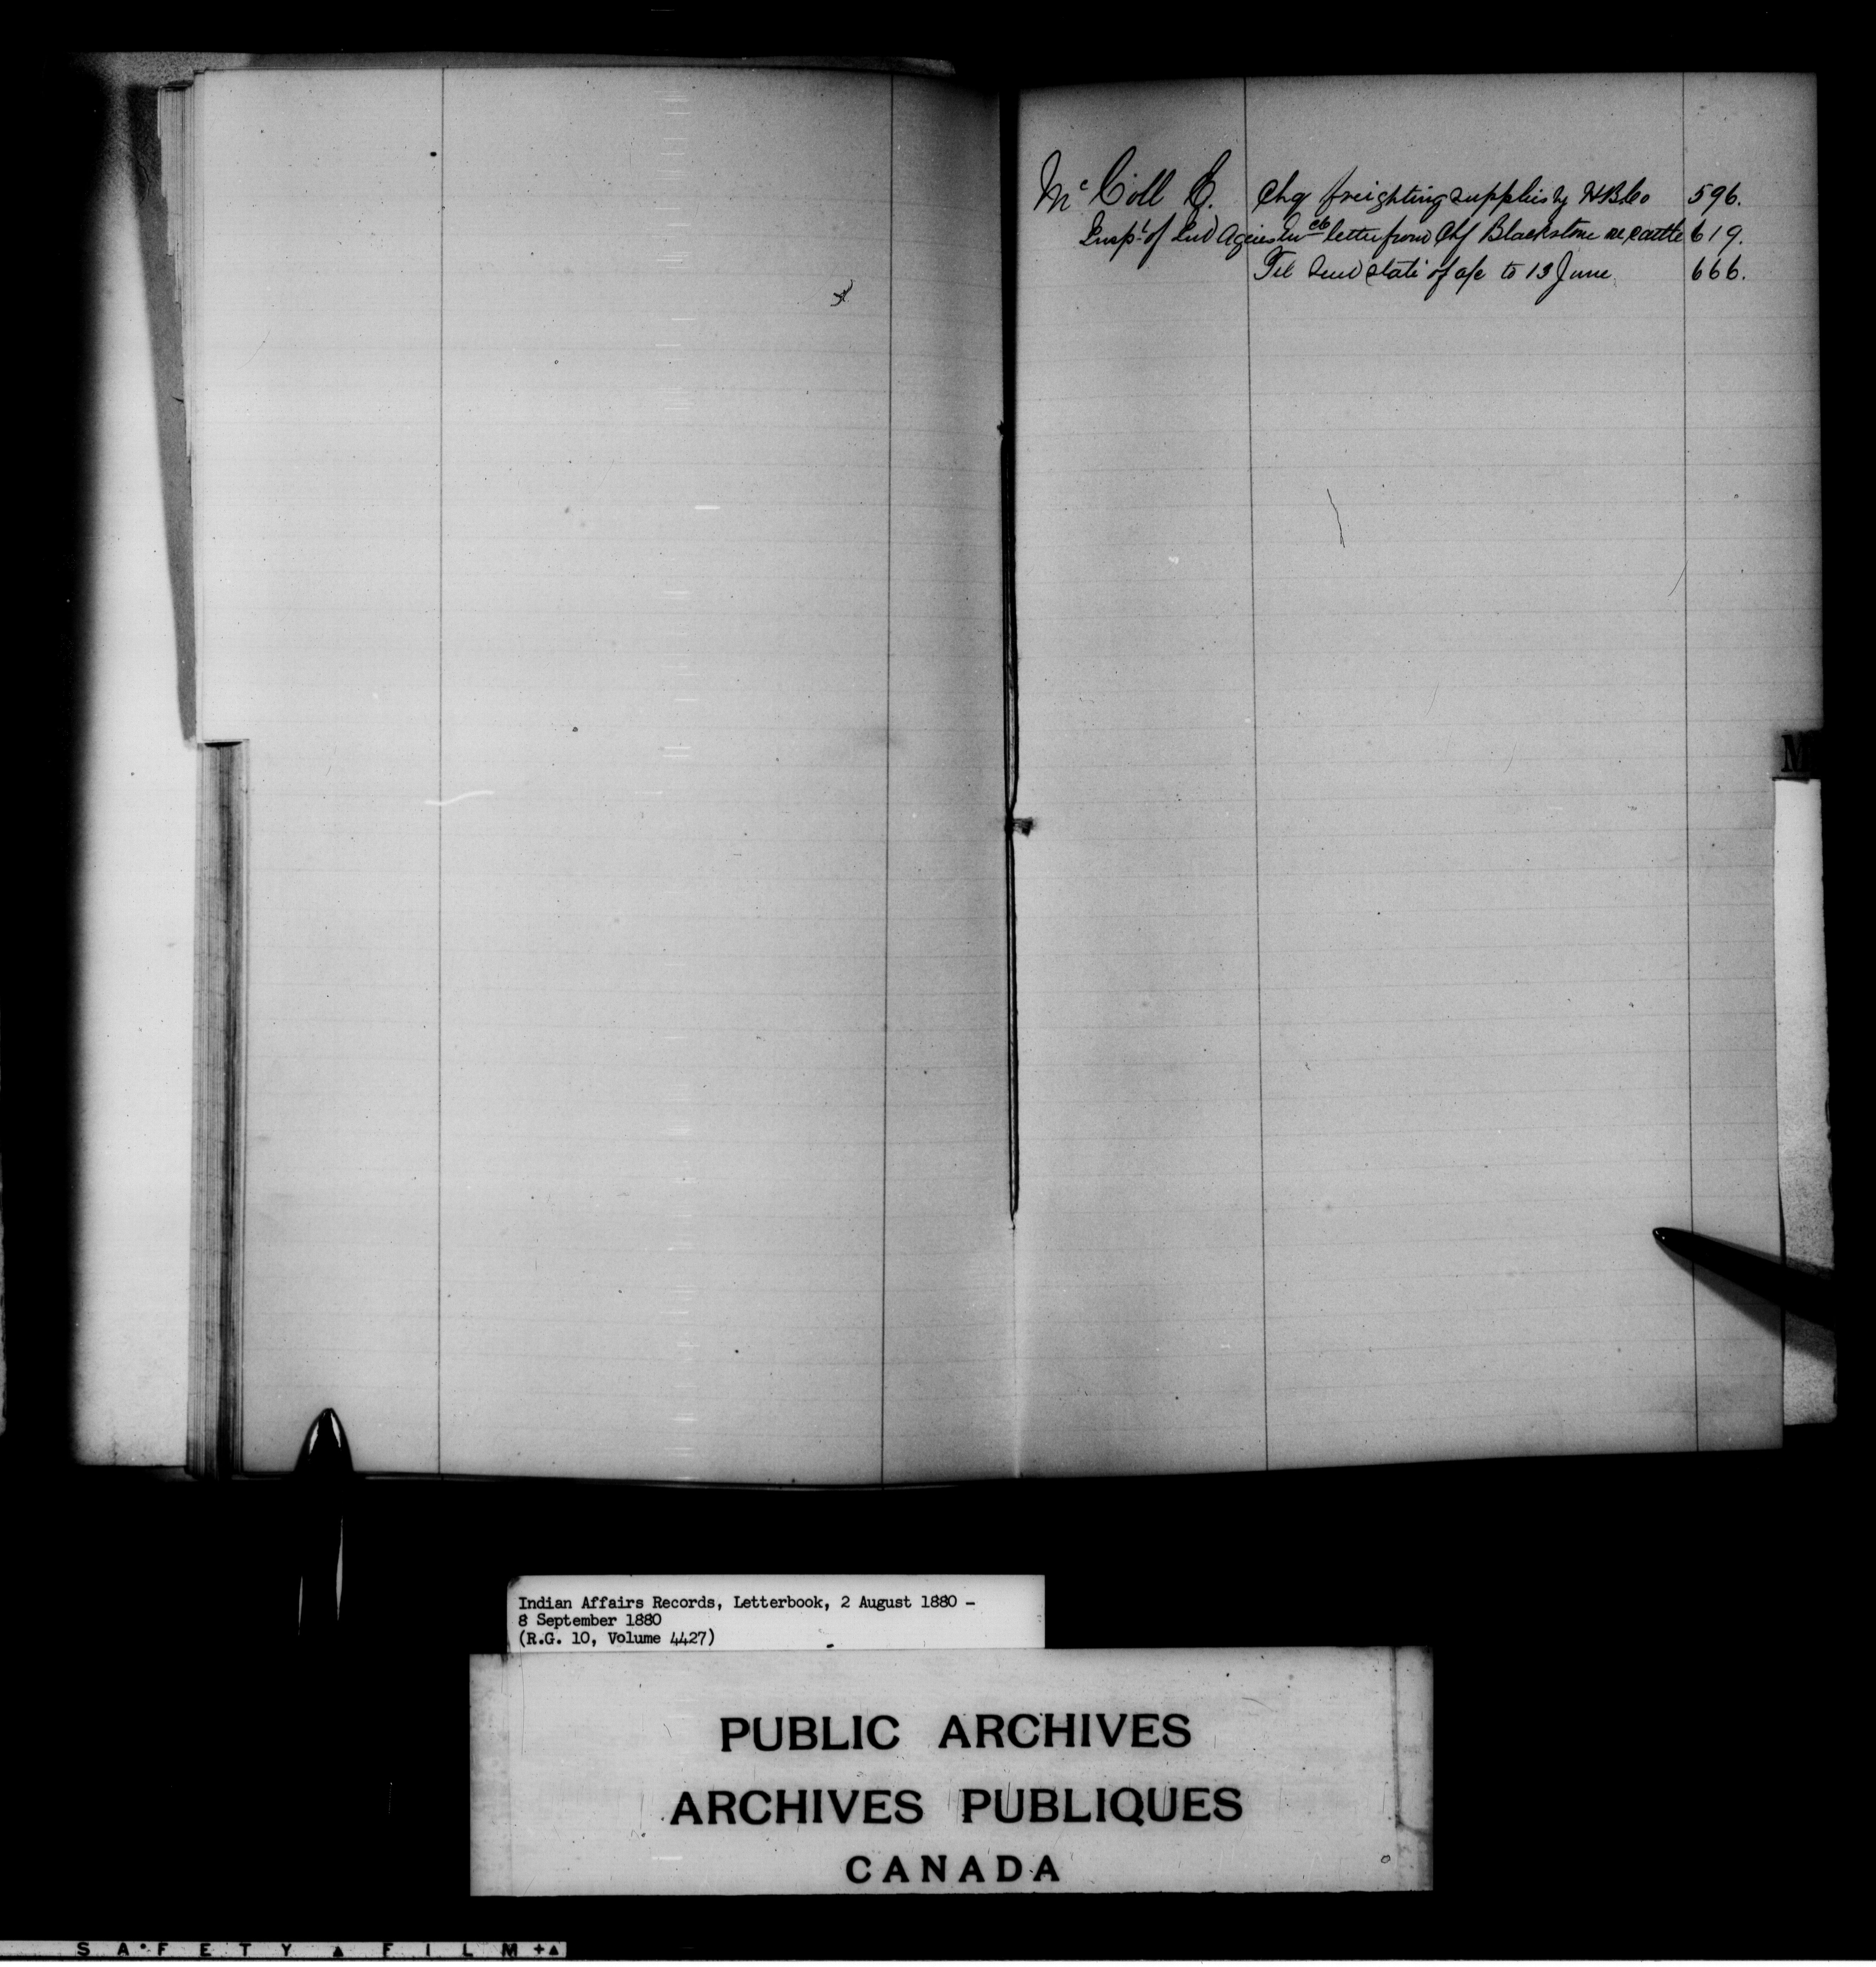 Mc Coll E. Chq freighting supplies by HBCo 596.
Inspt of Ind Agencies letter from Chf Blackstone re cattle 619.
Tel Send state of a/c to 13 June 666.
M
Indian Affairs Records, Letterbook, 2 August 1880 -
8 September 1880
(R.G. 10, Volume 4427)
PUBLIC ARCHIVES
ARCHIVES PUBLIQUES
CANADA
SAFETY FILM